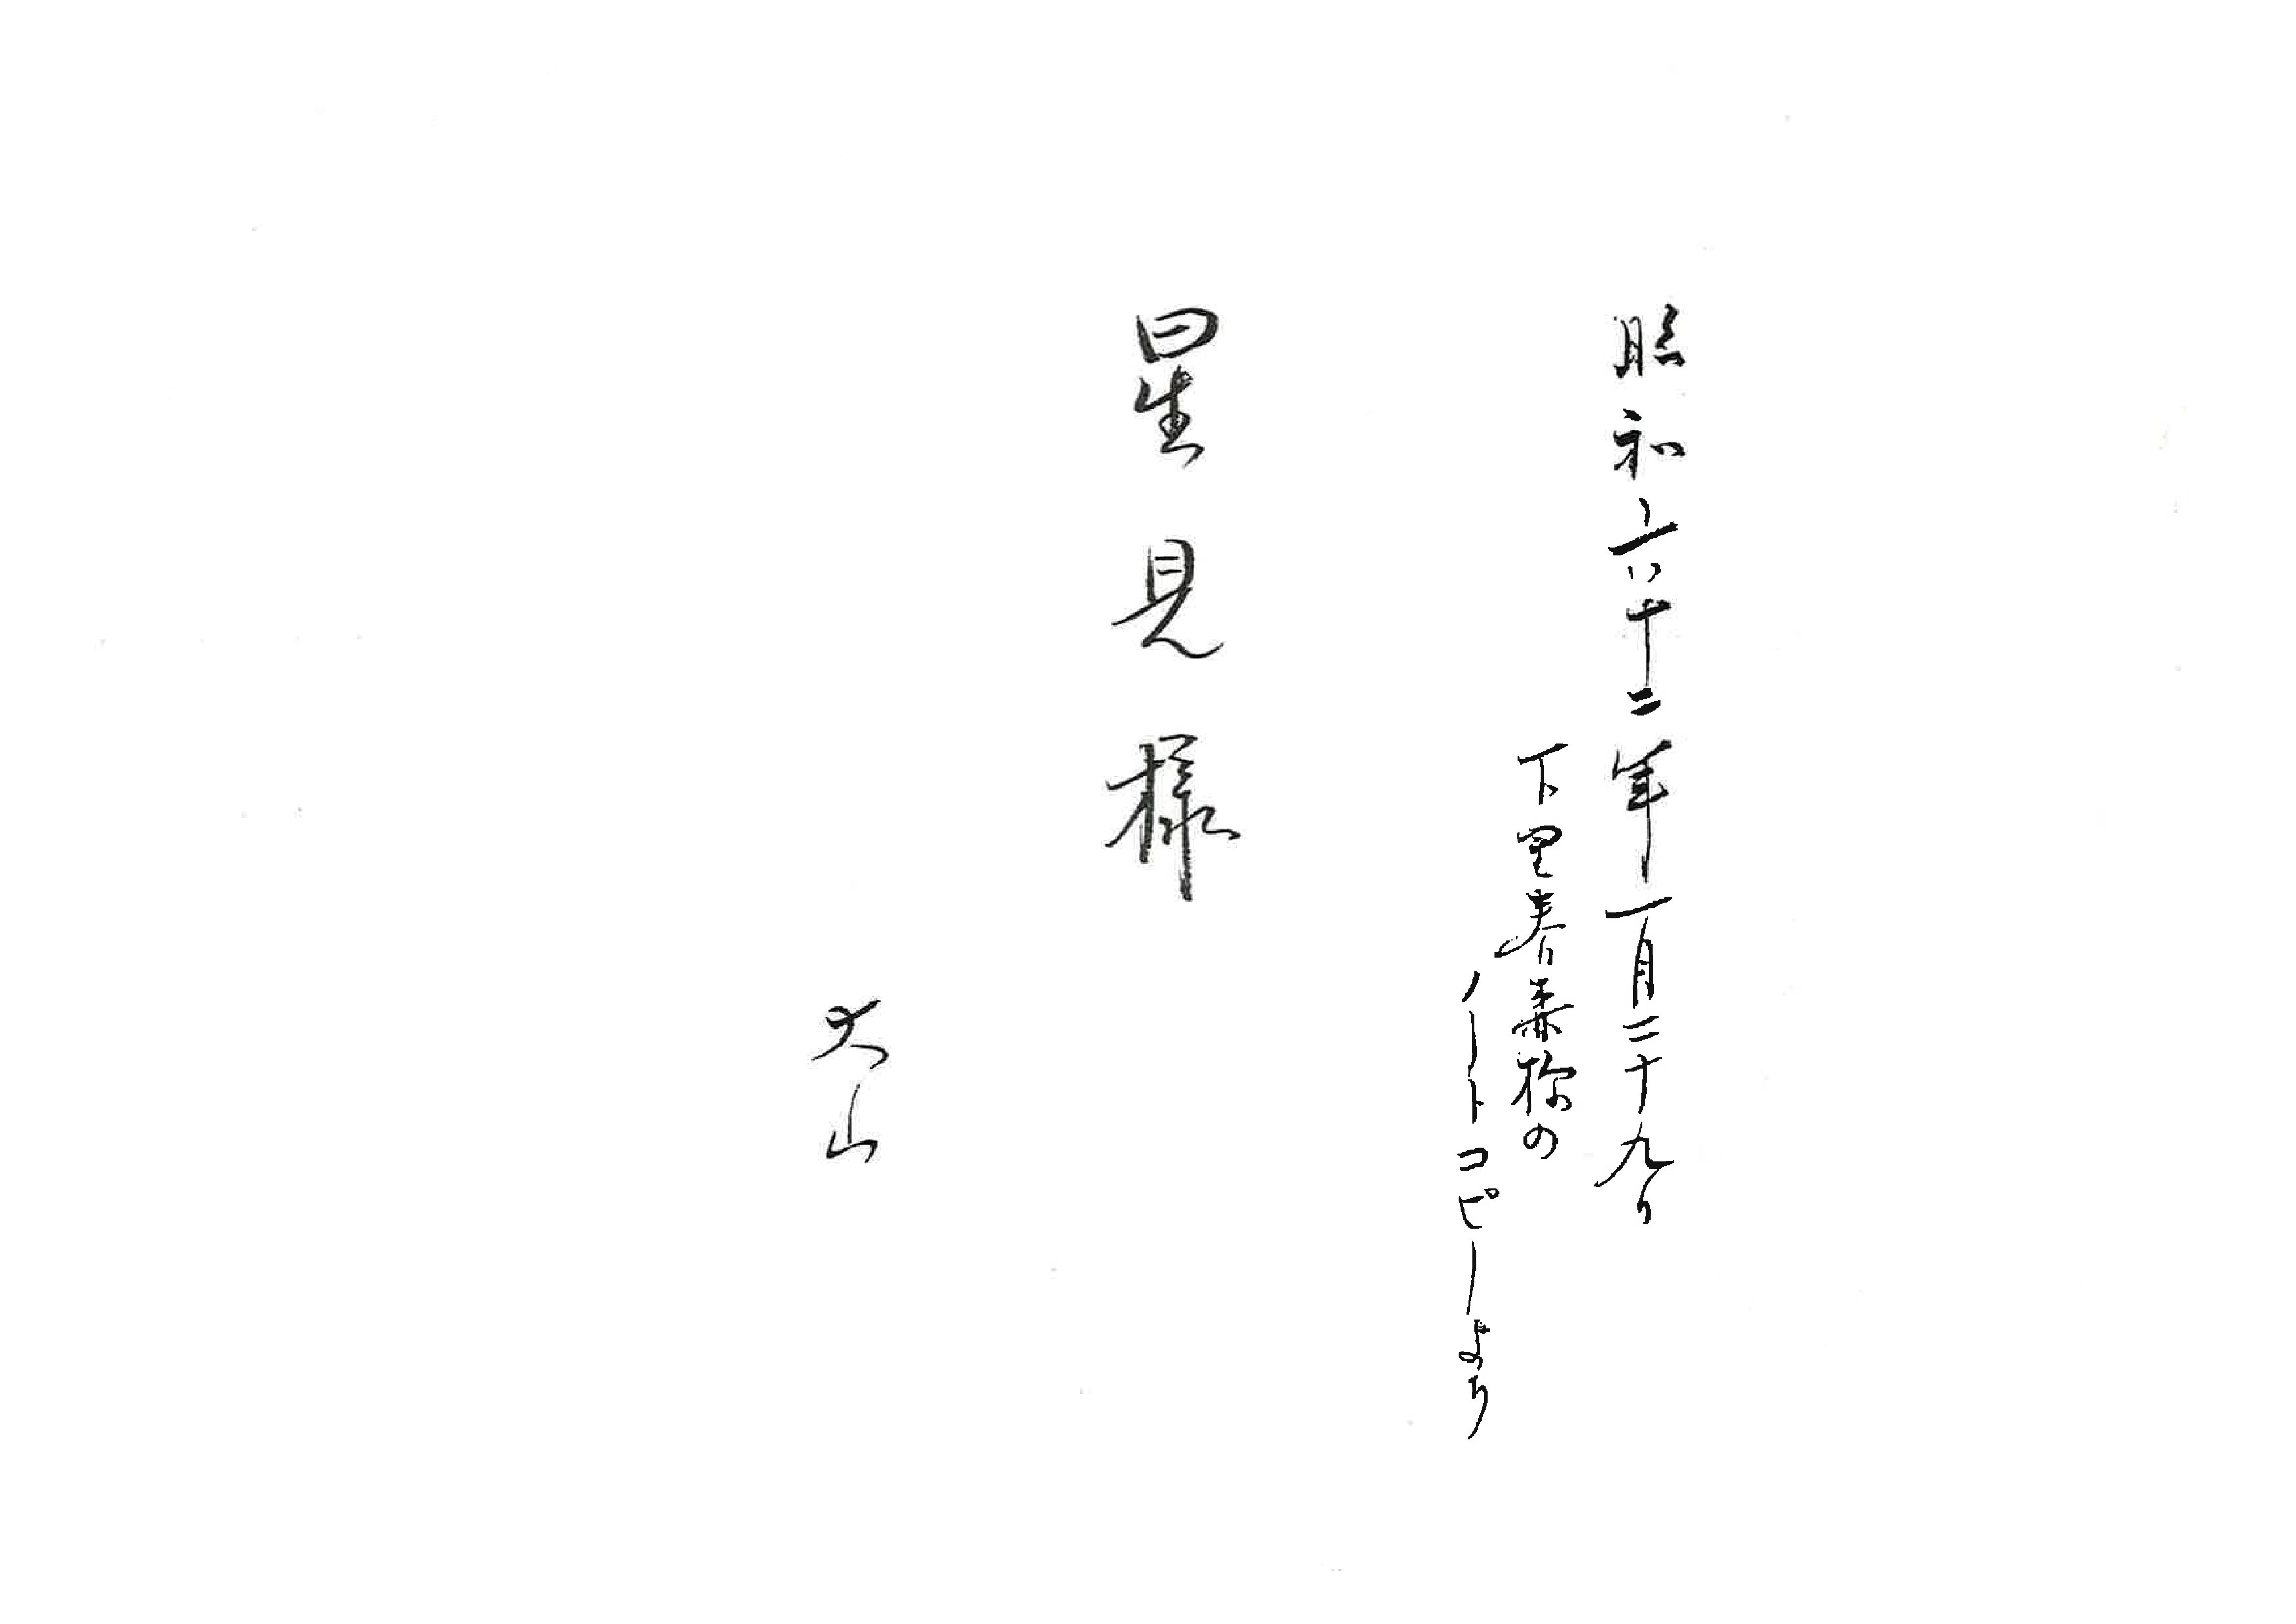 昭和六十二年一月二十九日
下里春森様の
ノートコピーより
星見様
大山